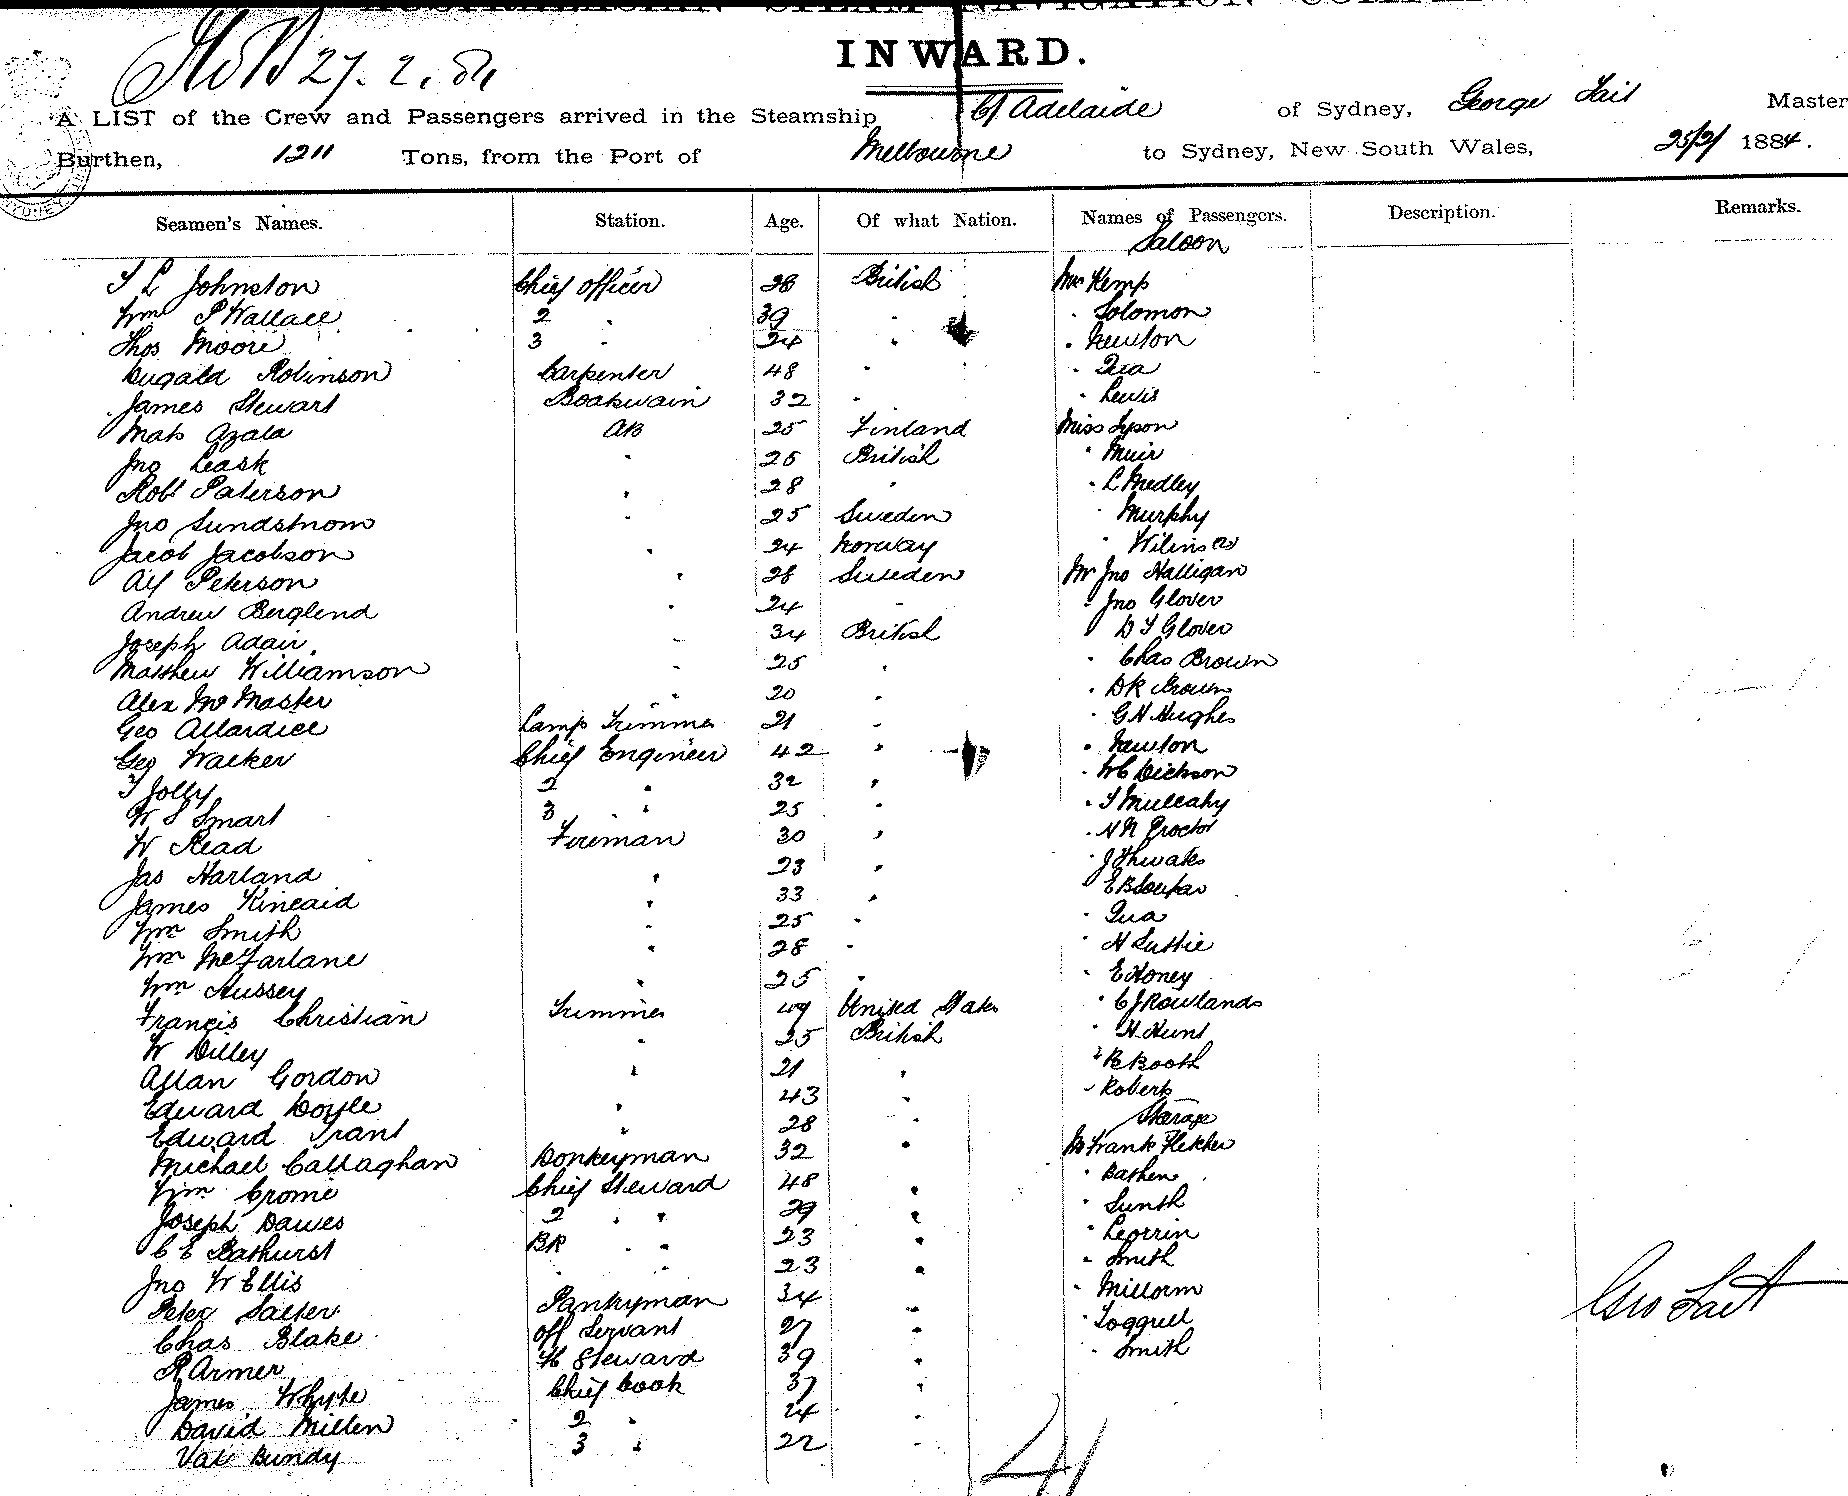 AUSTRALASIAN STEAM NAVIGATION COMPANY
INWARD.
27. 2. 84
A LIST of the Crew and Passengers arrived in the Steamship C/ Adelaide of Sydney, George Tait Master
Burthen, 1211 Tons, from the Port of Melbourne to Sydney, New South Wales, 25/2/ 1884.
Seamen's Names. Station. Age. Of what Nation. Names of Passengers. Description. Remarks.
Saloon
T L Johnston Chief officer 28 British Mr Kemp
Wm P Wallace 2 " 39 " " Solomon
Thos Moore 3 " 24 " " Newton
Dugald Robinson Carpenter 48 " " Qua
James Stewart Boatswain 32 " " Lewis
Mats Azala AB 25 Finland Miss Lyson
Jno Leask " 26 British " Muir
Robt Paterson " 28 " " L Medley
Jno Sundstrom " 25 Sweden " Murphy
Jacob Jacobson " 24 Norway "
Alf Peterson " 28 Sweden Mr Jno Halligan
Andrew Berglend " 24 " " Jno Glover
Joseph Adair " 34 British " D T Glover
Matthew Williamson " 25 " " Chas Brown
Alex McMaster " 20 " " D R Brown
Geo Allardice Lamp Trimmer 21 " " G H Hughes
Geo Walker Chief Engineer 42 " " Newton
T Jolly 2 " 32 " " W C Dickson
W S Smart 3 " 25 " " T Mulcahy
W Read Fireman 30 " " H N Proctor
Jas Harland " 23 " " J Thwaites
James Kincaid " 33 " " E B
Wm Smith " 25 " " Qua
Wm McFarlane " 28 " " H Suttie
Wm Hussey " 25 " " E Honey
Francis Christian Trimmer 49 United States " C J Rowlands
W Dilley " 25 British " H Hunt
Allan Gordon " 21 " " R Booth
Edward Doyle " 43 " " Roberts
Edward Trant " 28 " Steerage
Michael Callaghan Donkeyman 32 " Mr Frank Fletcher
Wm Cromie Chief Steward 48 " " Bathen
Joseph Dawes 2 " " 29 " "
C E Bathurst BR " " 23 " " Leorrin
Jno W Ellis " " 23 " " Smith
Peter Salter Pantryman 34 " "
Chas Blake Off Servant 27 " "
R Armer Steward 39 " " Smith
James Whyte Chief Cook 37 "
David Millen 2 " 24 "
Val Bundy 3 " 22 "
Geo Tait
41